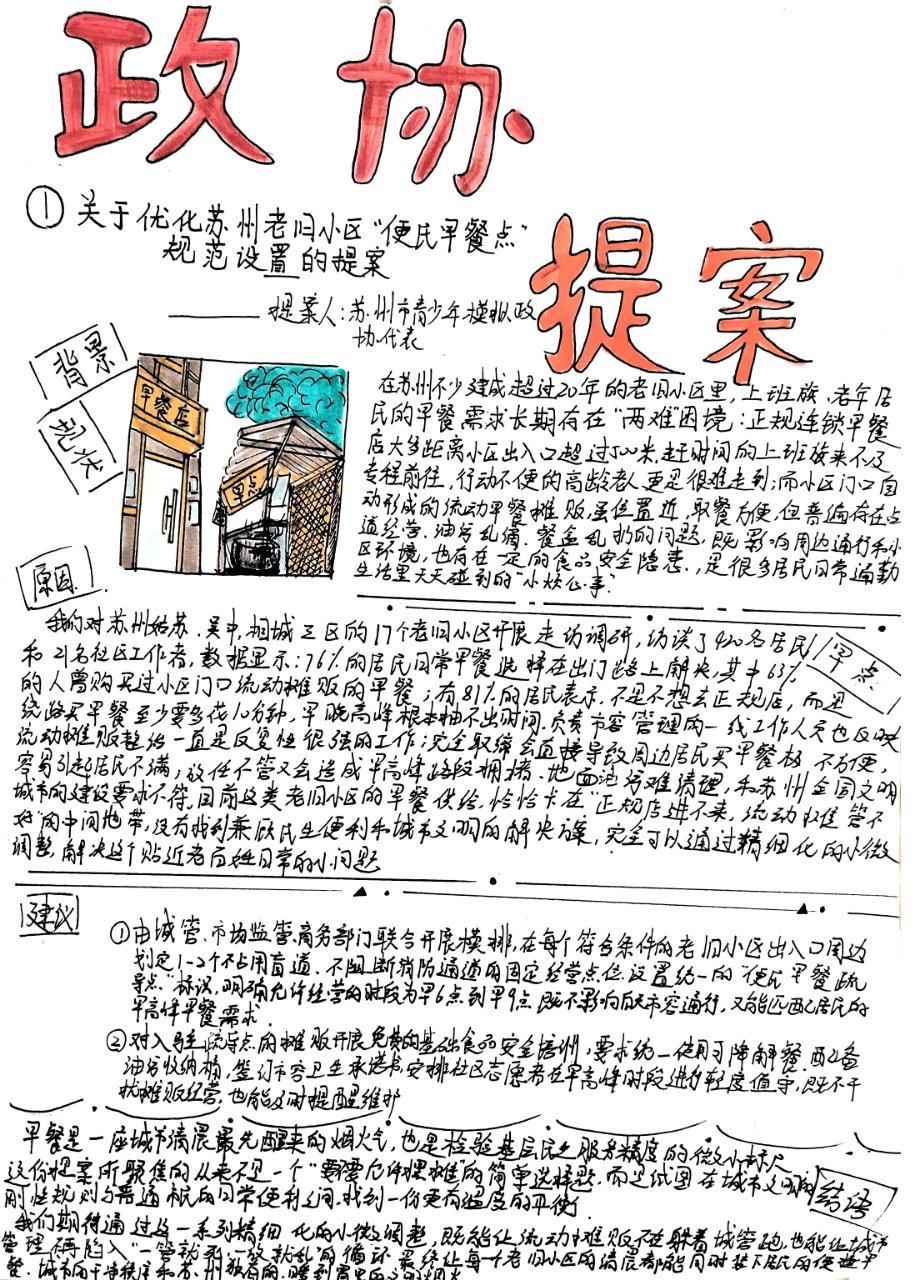 政协
提案
①关于优化苏州老旧小区“便民早餐点”
规范设置的提案
——提案人:苏州市青少年模拟政
协代表
背景
现状
早餐店
早点
在苏州不少建成超过20年的老旧小区里,上班族、老年居
民的早餐需求长期存在“两难”困境:正规连锁早餐
店大多距离小区出入口超过500米,赶时间的上班族来不及
专程前往,行动不便的高龄老人更是很难走到;而小区门口自
动形成的流动早餐摊贩,虽位置近,取餐方便,但普遍存在占
道经营、油污乱滴、餐盒乱扔的问题,既影响周边通行和小
区环境,也存在一定的食品安全隐患,是很多居民日常通勤
生活里天天碰到的“小烦心事”
原因
早点
我们对苏州姑苏、吴中、相城三区的17个老旧小区开展走访调研,访谈了420名居民
和21名社区工作者,数据显示:76%的居民日常早餐选择在出门路上解决,其中63%
的人曾购买过小区门口流动摊贩的早餐;有81%的居民表示,不是不想去正规店,而是
绕路买早餐至少要多花10分钟,早晚高峰根本抽不出时间.负责市容管理的一线工作人员也反映
流动摊贩整治一直是反复性很强的工作:完全取缔会直接导致周边居民买早餐极不方便,
容易引起居民不满,放任不管又会造成早高峰路段拥堵、地面油污难清理,和苏州全国文明
城市的建设要求不符.目前这类老旧小区的早餐供给,恰恰卡在“正规店进不来,流动摊管不
好”的中间地带,没有找到兼顾民生便利和城市文明的解决方案,完全可以通过精细化的小微
调整,解决这个贴近老百姓日常的小问题
建议
①由城管、市场监管、商务部门联合开展摸排,在每个符合条件的老旧小区出入口周边
划定1-2个不占用盲道、不阻断消防通道的固定经营点位,设置统一的“便民早餐疏
导点”标识,明确允许经营的时段为早6点到早9点,既不影响市容通行,又能匹配居民的
早高峰早餐需求.
②对入驻疏导点的摊贩开展免费的基础食品安全培训,要求统一使用可降解餐具,配备
油污收纳桶,签订市容卫生承诺书,安排社区志愿者在早高峰时段进行轻度值守,既不干
扰摊贩经营,也能及时提醒维护
结语
早餐是一座城市清晨最先醒来的烟火气,也是检验基层民生服务精度的微小标尺
这份提案所聚焦的从来不是一个“要不要允许摆摊”的简单选择题,而是试图在城市文明的
刚性规则与普通市民的日常便利之间,找到一份更有温度的平衡
我们期待通过这一系列精细化的小微调整,既能让流动摊贩不必躲着城管跑,也能让城市
管理不再陷入“一管就死、一放就乱”的循环,最终让每个老旧小区的清晨都能同时装下居民的便捷早
餐、城市的干净秩序和苏州